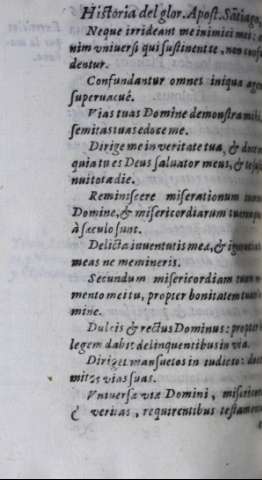 Historia del glor. Apost. Sãtiago,
Neque irrideant me inimici mei: e-
nim vniuersi qui sustinent te, non confun
dentur.
Confundantur omnes iniqua agen
superuacuè.
Vias tuas Domine demonstra mihi,
semitas tuas edoce me.
Dirige me in veritate tua, & doce
quia tu es Deus saluator meus, & te
nui tota die.
Reminiscere miserationum tuarum
Domine, & misericordiarum tuarum
à sæculo sunt.
Delicta iuuentutis meæ, & ignoran
meas ne memineris.
Secundum misericordiam tuam me
mento mei tu, propter bonitatem tuam
mine.
Dulcis & rectus Dominus: propter
legem dabit delinquentibus in via.
Diriget mansuetos in iudicio: doce
mites vias suas.
Vniuersæ viæ Domini, misericor
& veritas, requirentibus testamen